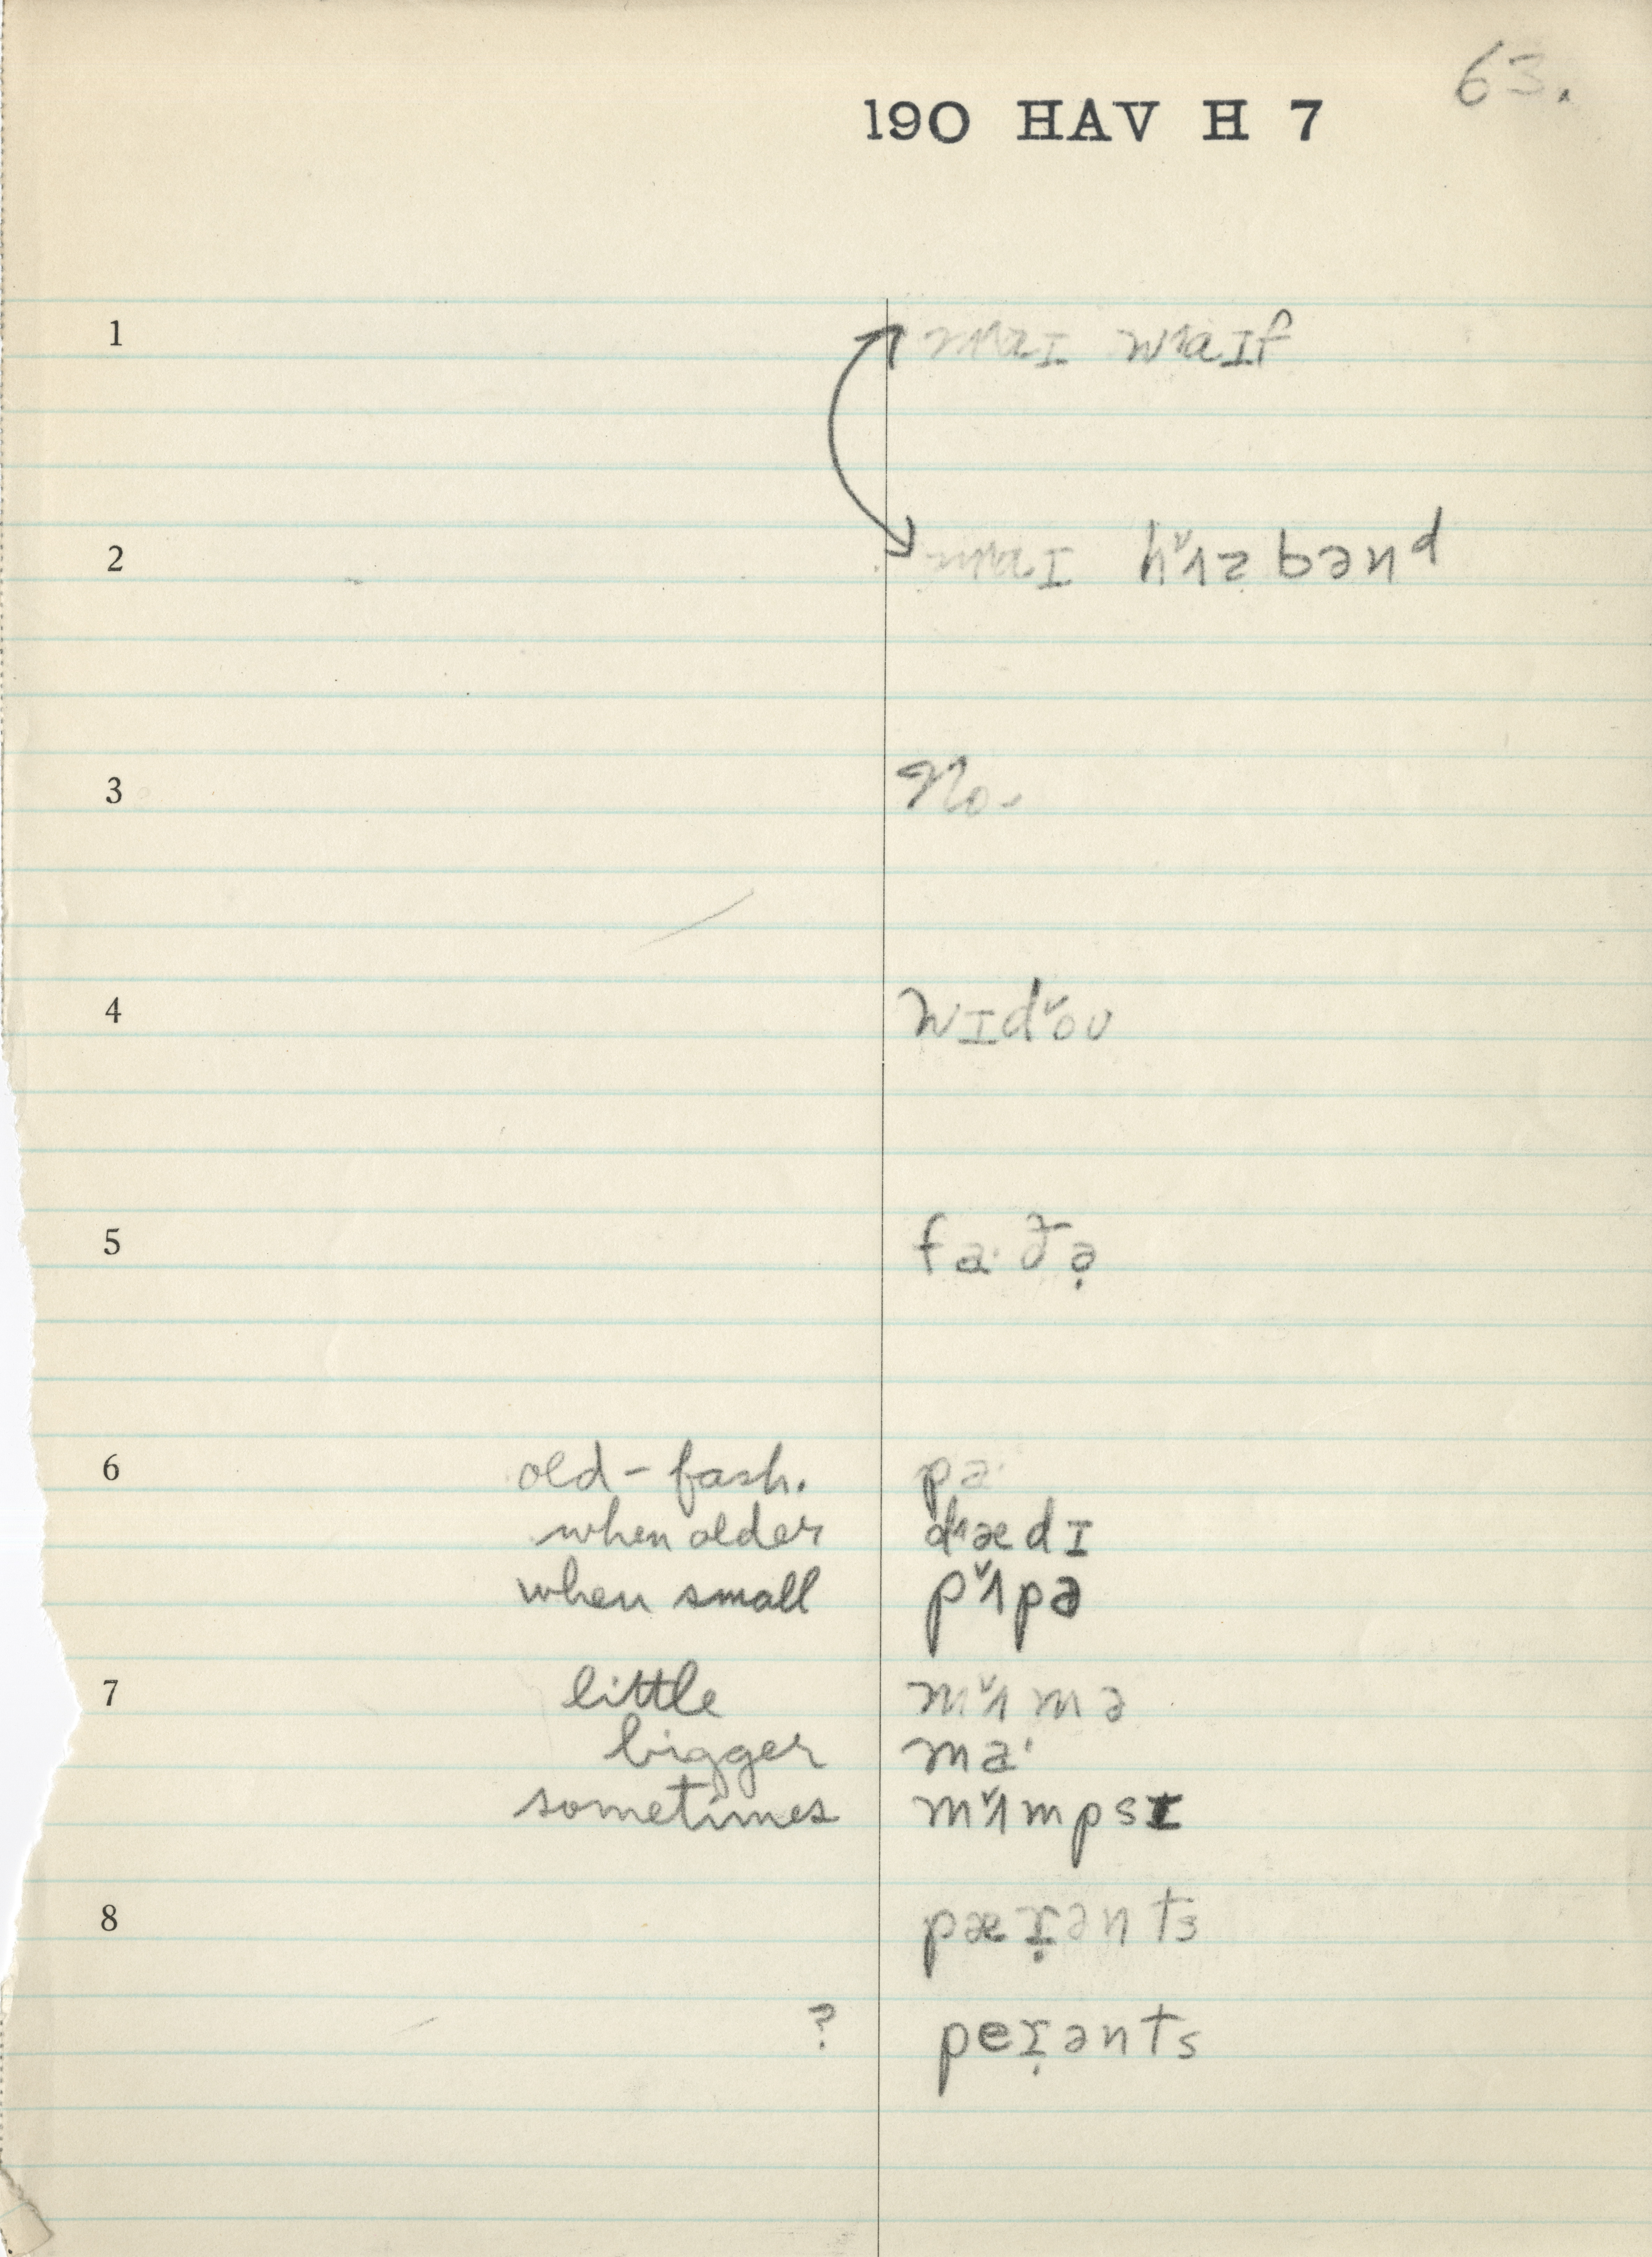 63.
190 HAV H 7
1 maɪ waɪf
2 maɪ hʌzbənd
3 No.
4 wɪdoʊ
5 fa·ðə̣
6 old-fash. pa·
when older dædɪ
when small pʌpə
7 little mʌmə
bigger ma·
sometimes mʌmpsɪ
8 pæɪ̣ənts
? peɪ̣ənts